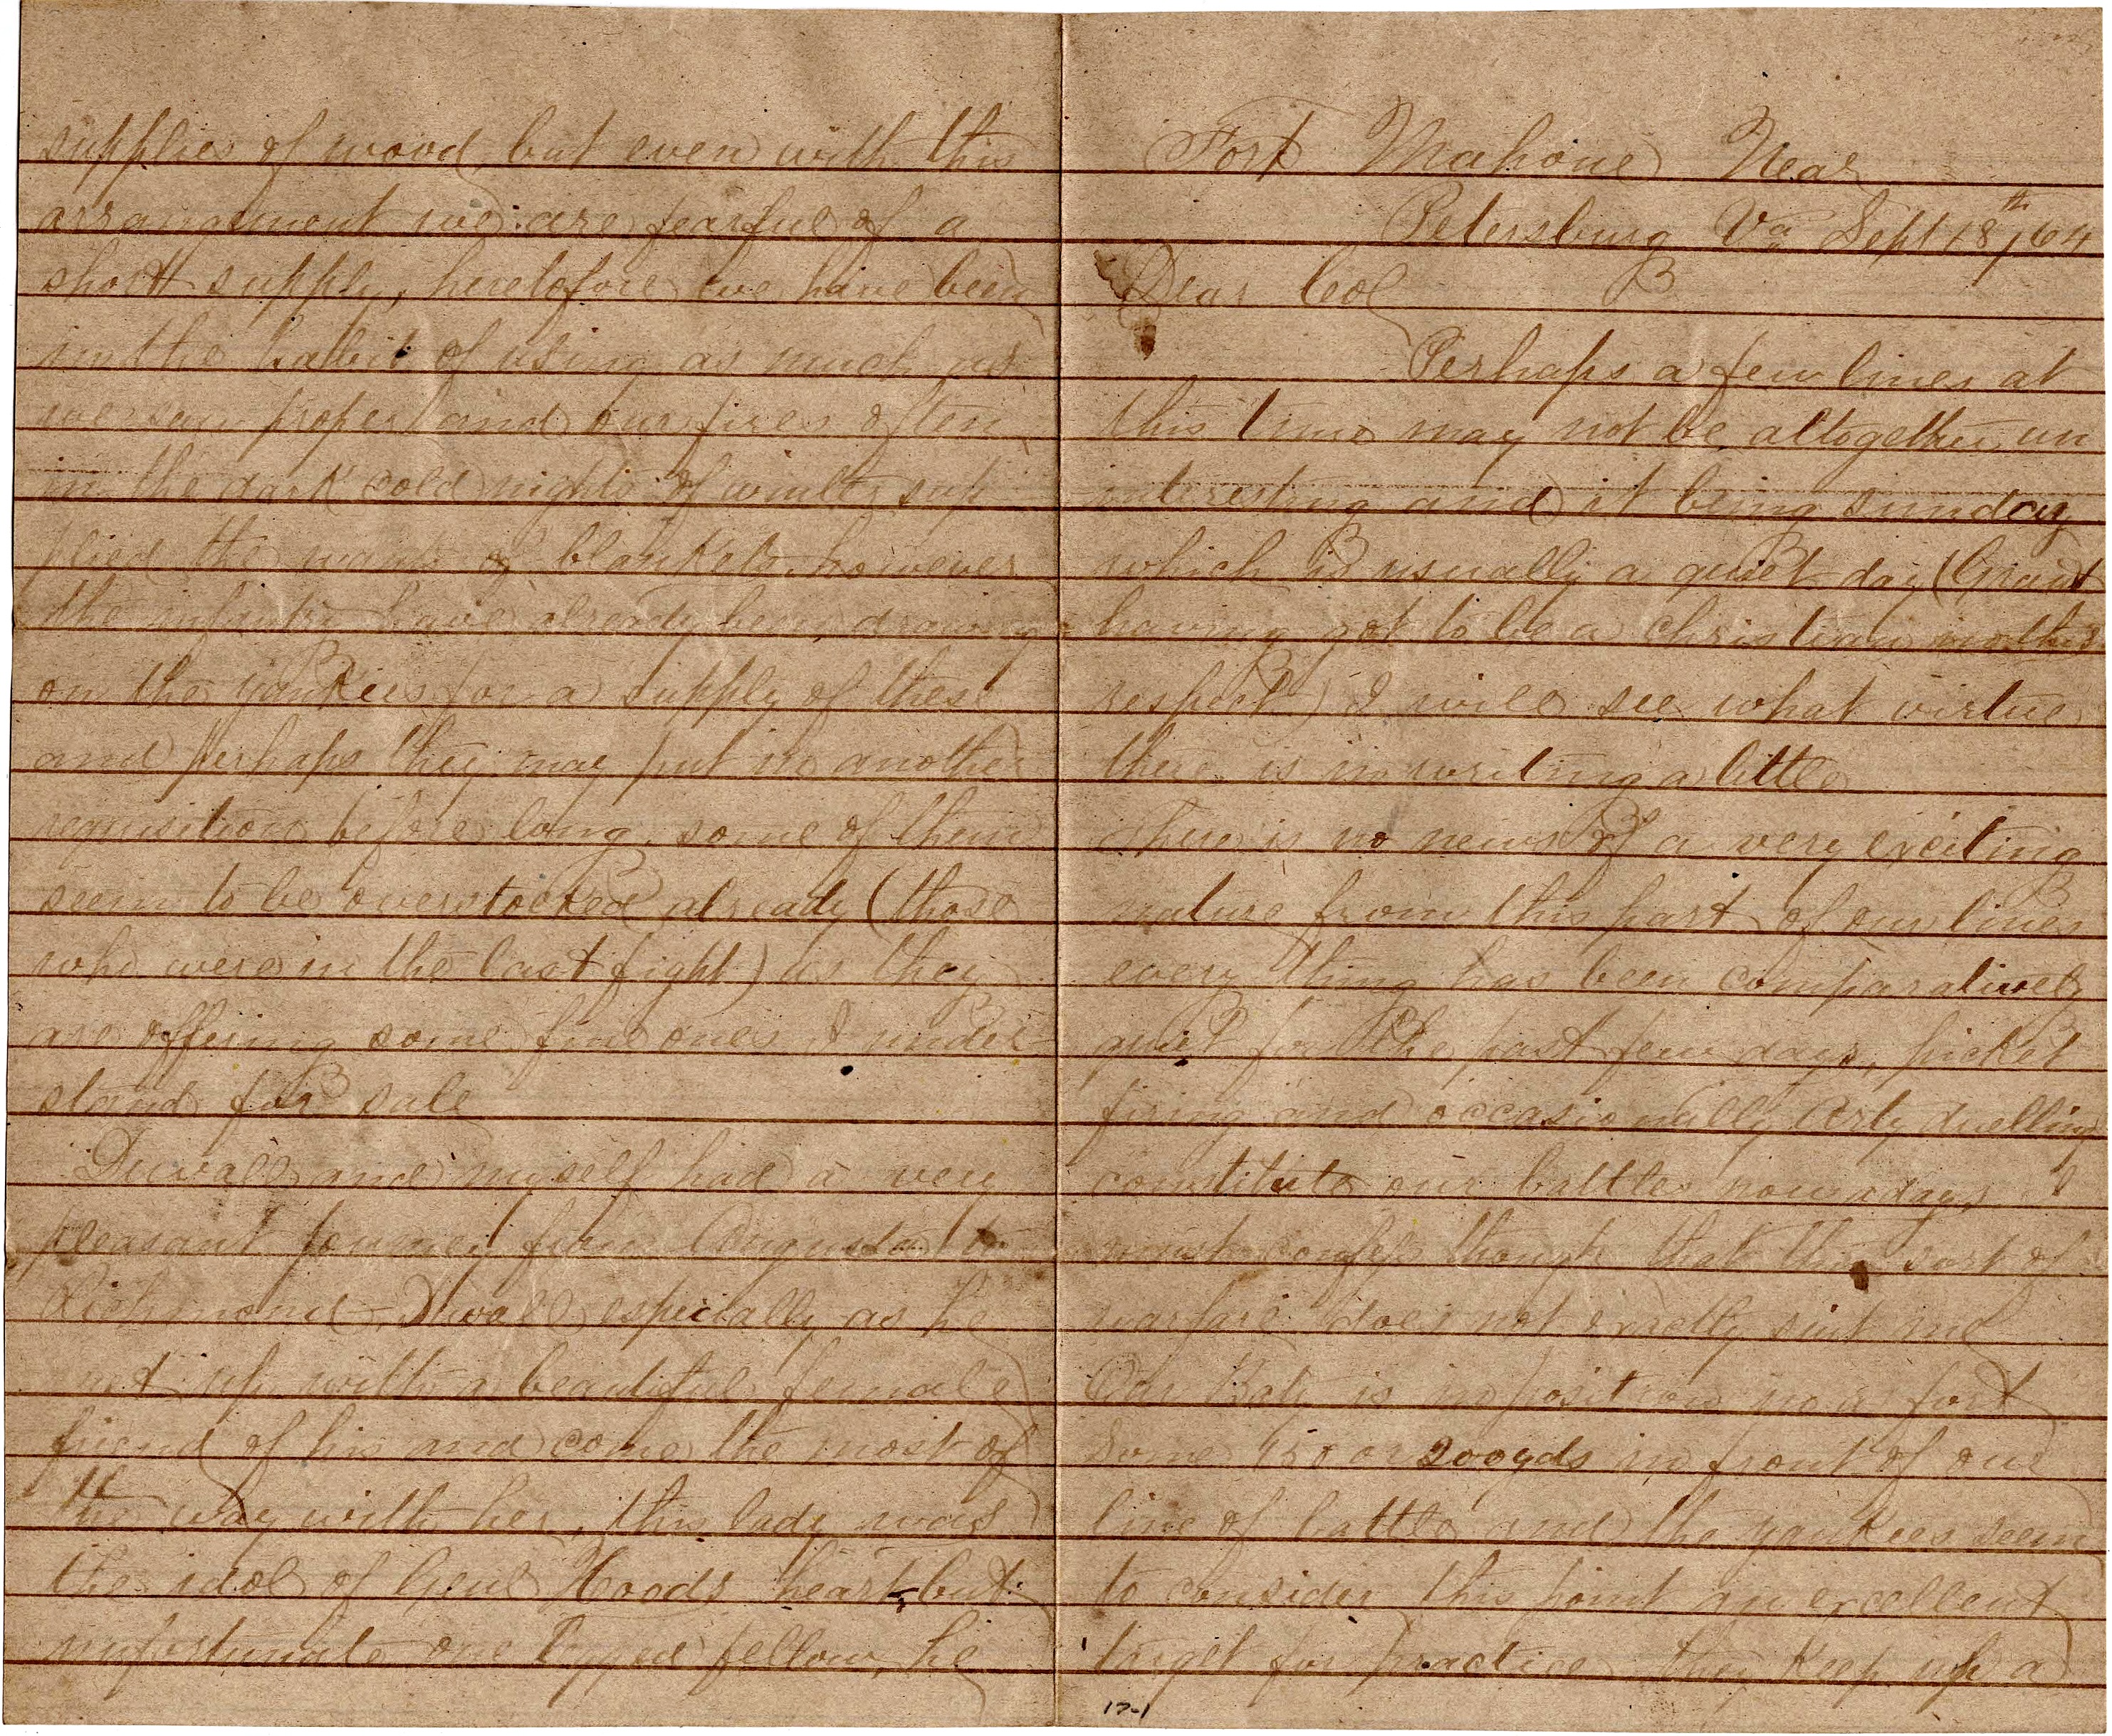 Fort Mahone Near
Petersburg Va Sept 18th/64
Dear Col
Perhaps a few lines at
this time may not be altogether un
interesting and it being sunday
which is usually a quiet day (Grant
having got to be a christian in this
respect) I will see what virtue
there is in writing a little
There is no news of a very exciting
nature from this part of our lines
every thing has been comparatively
quiet for the past few days, picket
firing and occasionally Arty duelling
constitute our battles nowadays I
must confess though that this sort of
warfare does not exactly suit me
Our Baty is in position in a fort
some 150 or 200yds in front of our
line of battle and the yankees seem
to consider this point an excellent
target for practice they keep up a
17-1
supplies of wood, but even with this
arrangement we are fearful of a
short supply, heretofore we have been
in the habit of using as much as
we saw proper and our fires often
in the dark cold nights of winter sup
plied the wants of blankets, however
the infantry have already been drawing
on the yankees for a supply of these
and perhaps they may put in another
requisition before long. some of them
seem to be overstocked already (those
who were in the last fight) as they
are offering some fine ones I under
stand for sale
Duvall and myself had a very
pleasant journey from Augusta to
Richmond, Duvall especially as he
met up with a beautiful female
friend of his and come the most of
the way with her, this lady was
the idol of Genl Hoods heart, but
unfortunate one legged fellow, he